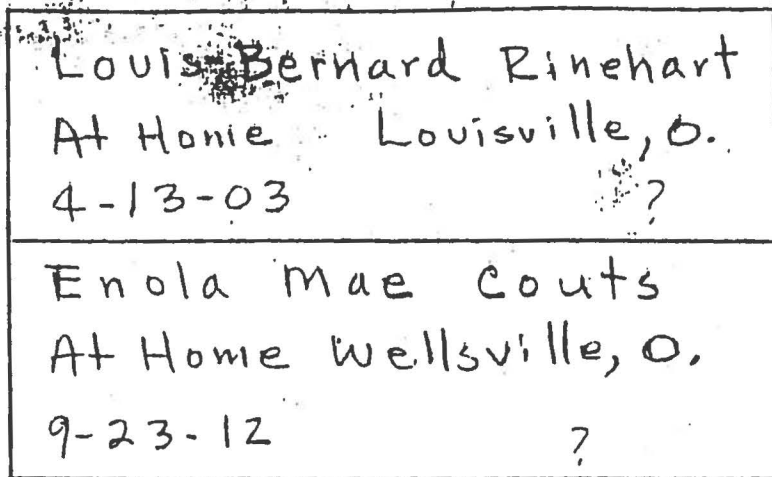 Louis Bernard Rinehart
At Home Louisville, O.
4-13-03 ?
Enola Mae Couts
At Home Wellsville, O.
9-23-12 ?